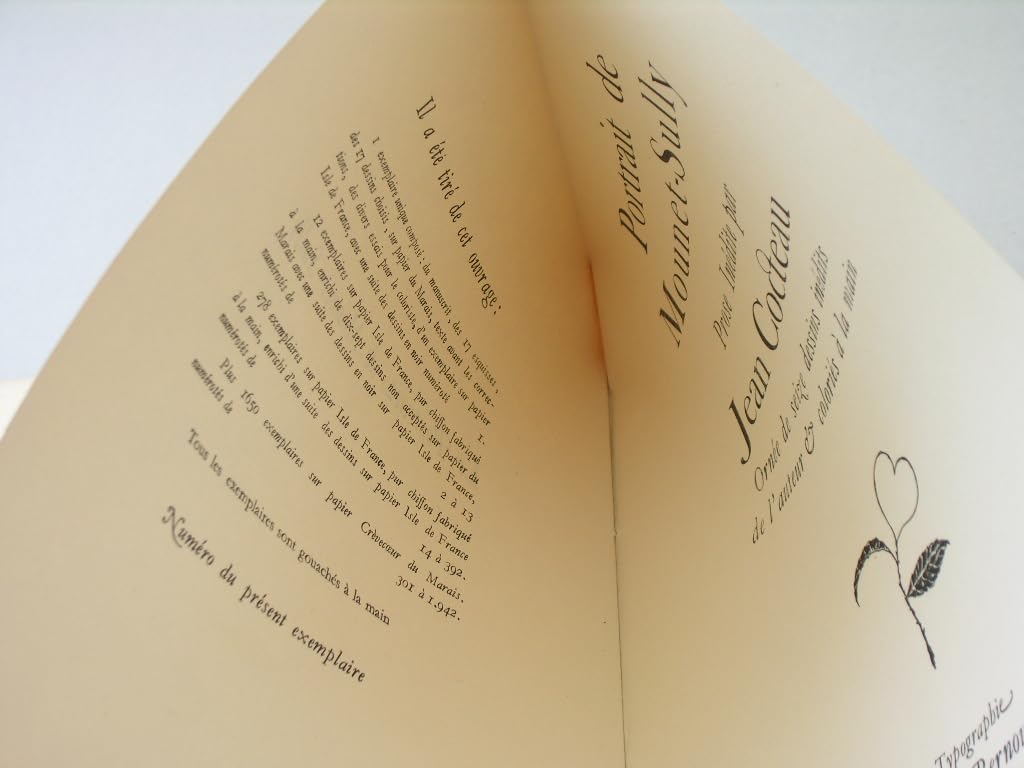 Il a été tiré de cet ouvrage:
1 exemplaire unique composé: du manuscrit, des 17 esquisses,
des 17 dessins choisis, sur papier du Marais, texte avant les correc-
tions, des divers essais pour le coloriste, d'un exemplaire sur papier
Isle de France, avec une suite des dessins en noir numéroté 1.
12 exemplaires sur papier Isle de France, pur chiffon fabriqué
à la main, enrichi de dix-sept dessins non acceptés sur papier du
Marais avec une suite des dessins en noir sur papier Isle de France,
numérotés de 2 à 13
278 exemplaires sur papier Isle de France, pur chiffon fabriqué
à la main, enrichi d'une suite des dessins sur papier Isle de France
numérotés de 14 à 392.
Plus 1650 exemplaires sur papier Crèvecœur du Marais.
numérotés de 301 à 1.942.
Tous les exemplaires sont gouachés à la main
Numéro du présent exemplaire
Portrait de
Mounet-Sully
Prose Inédite par
Jean Cocteau
Ornée de seize dessins inédits
de l'auteur & coloriés à la main
Typographie